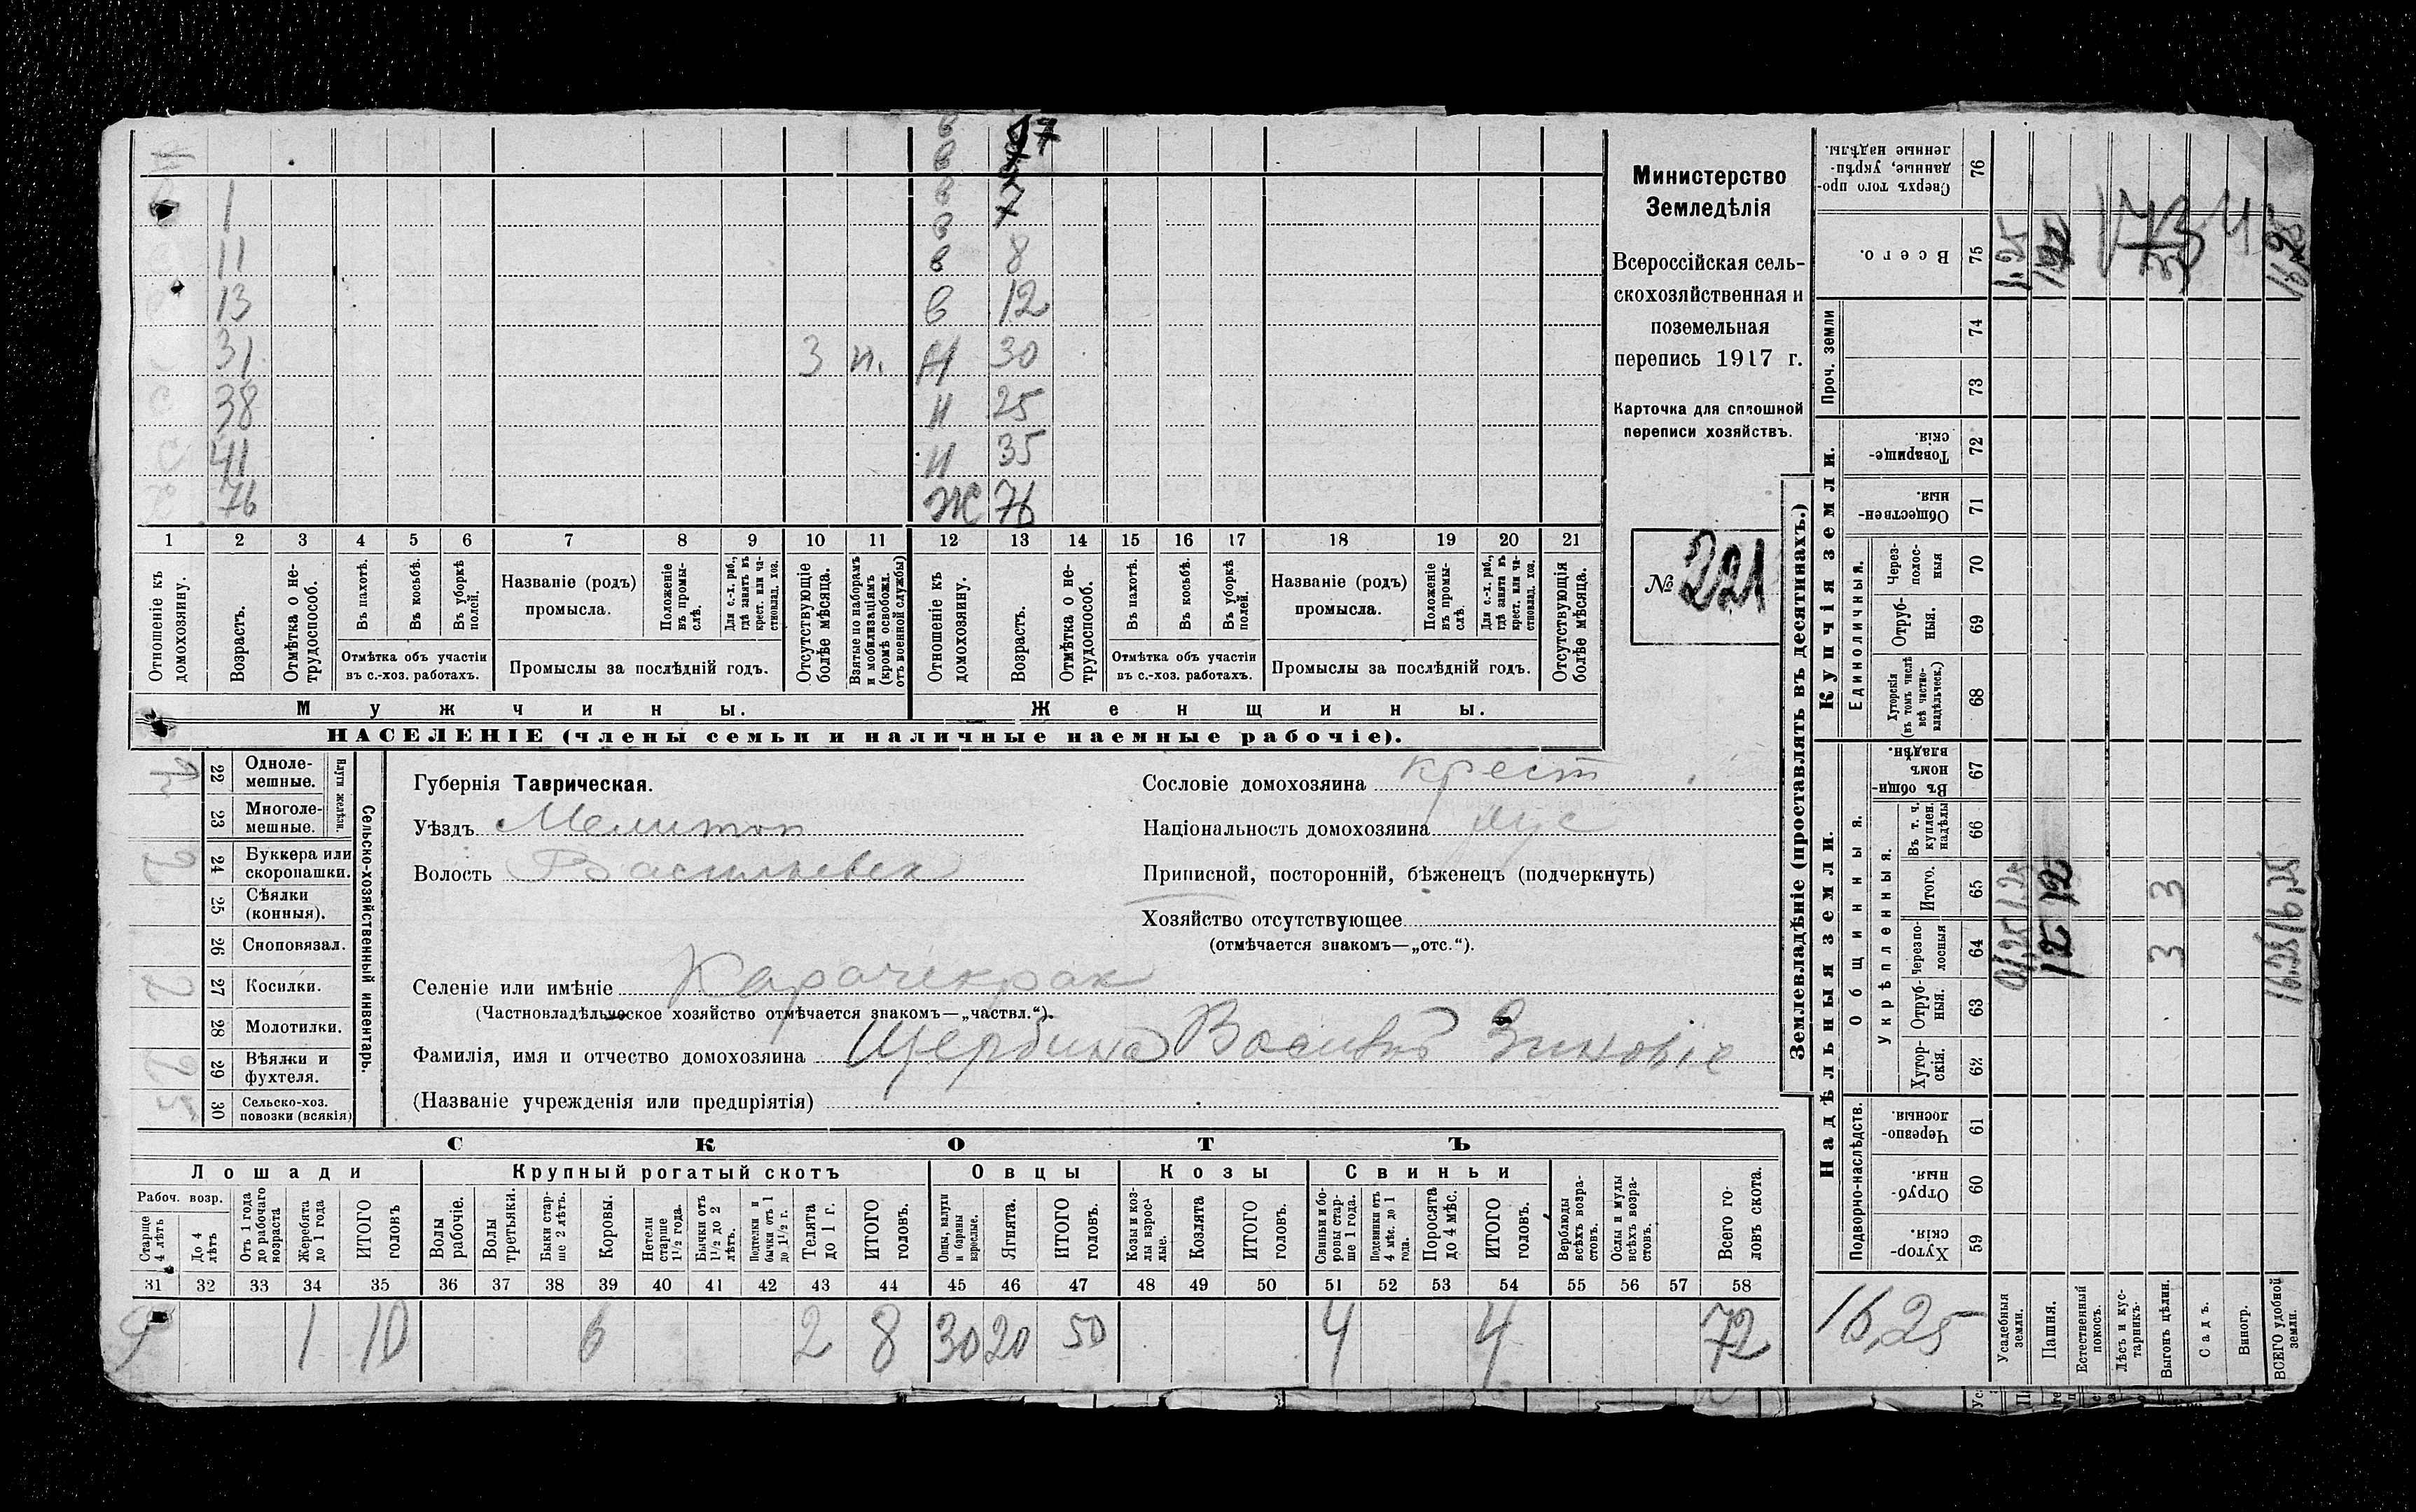 Министерство
Земледѣлія
Всероссійская сель-
скохозяйственная и
поземельная
перепись 1917 г.
Карточка для сплошной
переписи хозяйствъ.
№ 221
в 7
в 8
1
11 в 12
13
31 3 п. Н 30
38 Н 25
41 Н 35
76 Ж 76
1 2 3 4 5 6 7 8 9 10 11 12 13 14 15 16 17 18 19 20 21
Отношеніе къ домохозяину.
Возрастъ.
Отмѣтка о не-трудоспособ.
Въ пахотѣ.
Въ косьбѣ.
Въ уборкѣ полей.
Отмѣтка объ участіи
въ с.-хоз. работахъ.
Названіе (родъ)
промысла.
Положеніе въ промы-слѣ.
Для с.-х. раб., гдѣ занятъ въ крест. или ча-стновлад. хоз.
Промыслы за послѣдній годъ.
Отсутствующіе болѣе мѣсяца.
Взятые по наборамъ и мобилизаціямъ (кромѣ освобожд. отъ военной службы)
Отношеніе къ домохозяину.
Возрастъ.
Отмѣтка о не-трудоспособ.
Въ пахотѣ.
Въ косьбѣ.
Въ уборкѣ полей.
Отмѣтка объ участіи
въ с.-хоз. работахъ.
Названіе (родъ)
промысла.
Положеніе въ промы-слѣ.
Для с.-х. раб., гдѣ занята въ крест. или ча-стновлад. хоз.
Промыслы за послѣдній годъ.
Отсутствующія болѣе мѣсяца.
Мужчины.
Женщины.
НАСЕЛЕНІЕ (члены семьи и наличные наемные рабочіе).
Сельско-хозяйственный инвентарь.
Плуги желѣзн.
22 Одноле-мешные.
23 Многоле-мешные.
24 Буккера или скоропашки.
25 Сѣялки (конныя).
26 Сноповязал.
27 Косилки.
28 Молотилки.
29 Вѣялки и фухтеля.
30 Сельско-хоз. повозки (всякія)
Губернія Таврическая.
Уѣздъ Мелитоп
Волость Васильевск
Селеніе или имѣніе Карачекрак
(Частновладѣльческое хозяйство отмѣчается знакомъ—„частвл.“).
Фамилія, имя и отчество домохозяина Щербина Василій Зиновіе
(Названіе учрежденія или предпріятія)
Сословіе домохозяина крест
Національность домохозяина рус
Приписной, посторонній, бѣженецъ (подчеркнуть)
Хозяйство отсутствующее
(отмѣчается знакомъ—„отс.“).
СКОТЪ
Лошади
Крупный рогатый скотъ
Овцы
Козы
Свиньи
Рабоч. возр.
Старше 4 лѣтъ
До 4 лѣтъ
Отъ 1 года до рабочаго возраста
Жеребята до 1 года
ИТОГО головъ
Волы рабочіе.
Волы третьяки.
Быки стар-ше 2 лѣтъ.
Коровы.
Нетели старше 1 1/2 года.
Бычки отъ 1 1/2 до 2 лѣтъ.
Подтелки и бычки отъ 1 до 1 1/2 г.
Телята до 1 г.
ИТОГО головъ.
Овцы, валухи и бараны взрослые.
Ягнята.
ИТОГО головъ.
Козы и коз-лы взрос-лые.
Козлята
ИТОГО головъ.
Свиньи и бо-ровы стар-ше 1 года.
Подсвинки отъ 4 мѣс. до 1 года.
Поросята до 4 мѣс.
ИТОГО головъ.
Верблюды всѣхъ возра-стовъ.
Ослы и мулы всѣхъ возра-стовъ.
Всего го-ловъ скота.
31 32 33 34 35 36 37 38 39 40 41 42 43 44 45 46 47 48 49 50 51 52 53 54 55 56 57 58
9 1 10 6 2 8 30 20 50 4 4 72
Землевладѣніе (проставлять въ десятинахъ.)
Надѣльныя земли.
Купчія земли.
Проч. земли
Подворно-наслѣдств.
Общинныя.
Укрѣпленныя.
Единоличныя.
Хутор-скія. 59
Отруб-ныя. 60
Черезпо-лосныя. 61
Хутор-скія. 62
Отруб-ныя. 63
Черезпо-лосныя 64
Итого. 65
Въ т. ч. куплен. надѣлы 66
Въ общин-номъ владѣн. 67
Хуторскія (въ томъ числѣ всѣ частно-владѣльческ.) 68
Отруб-ныя. 69
Через-полос-ныя 70
Обществен-ныя. 71
Товарище-скія. 72
73
74
Всего. 75
Сверхъ того про-данные, укрѣп-ленные надѣлы. 76
16,25
Усадебныя земли.
Пашня.
Естественный покосъ.
Лѣсъ и кус-тарникъ.
Выгонъ цѣлин. 3 3
Садъ.
Виногр.
ВСЕГО удобной земли. 16,25 16,25